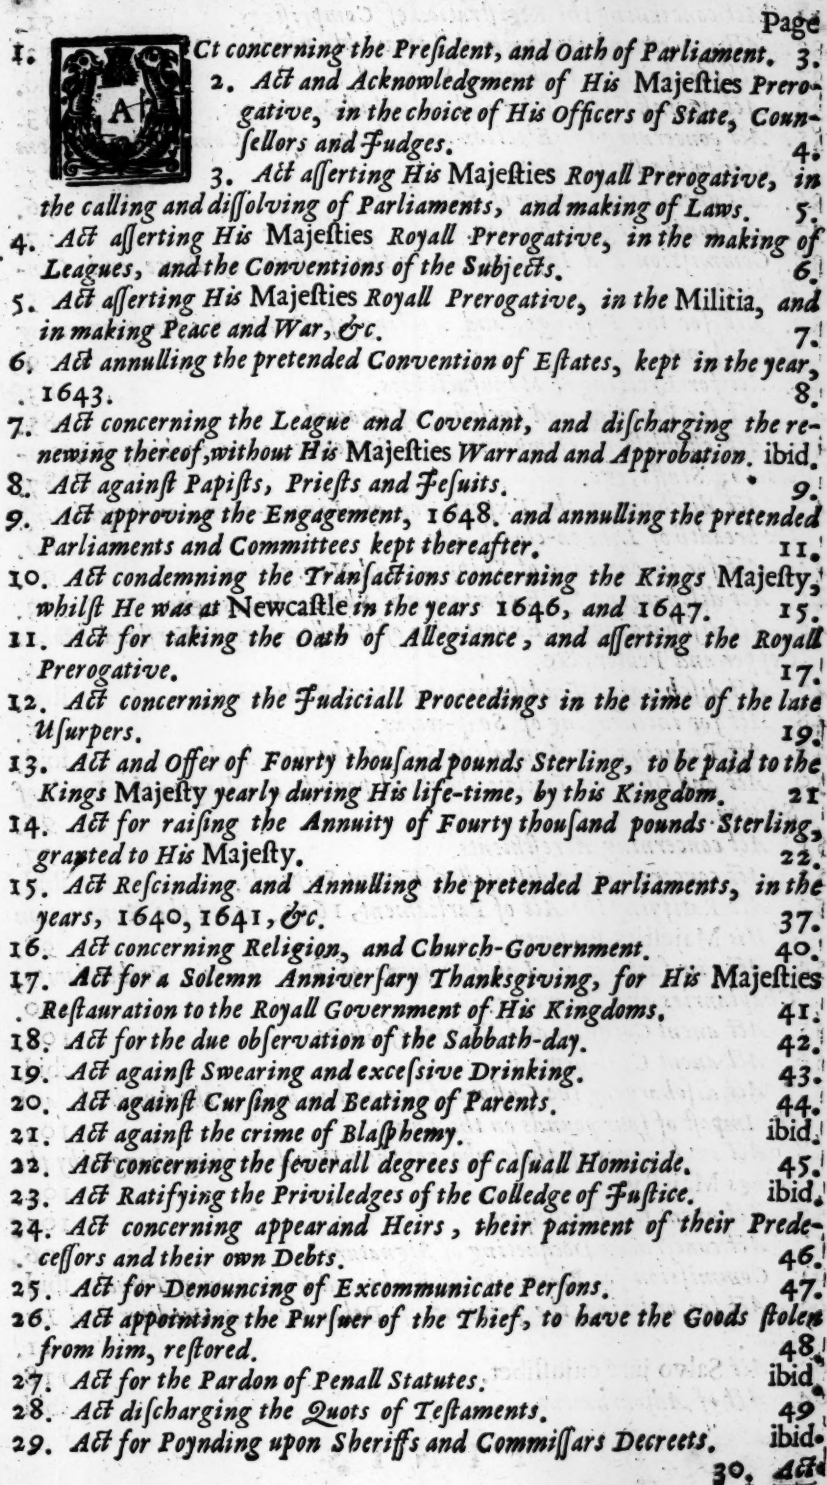 Page
1. ACt concerning the Preſident, and Oath of Parliament. 3.
2. Act and Acknowledgment of His Majeſties Prero-
gative, in the choice of His Officers of State, Coun-
ſellors and Judges. 4.
3. Act aſſerting His Majeſties Royall Prerogative, in
the calling and diſſolving of Parliaments, and making of Laws. 5.
4. Act aſſerting His Majeſties Royall Prerogative, in the making of
Leagues, and the Conventions of the Subjects. 6.
5. Act aſſerting His Majeſties Royall Prerogative, in the Militia, and
in making Peace and War, &c. 7.
6. Act annulling the pretended Convention of Eſtates, kept in the year,
1643. 8.
7. Act concerning the League and Covenant, and diſcharging the re-
newing thereof, without His Majeſties Warrand and Approbation. ibid.
8. Act againſt Papiſts, Prieſts and Jeſuits. 9.
9. Act approving the Engagement, 1648. and annulling the pretended
Parliaments and Committees kept thereafter. 11.
10. Act condemning the Tranſactions concerning the Kings Majeſty,
whilſt He was at Newcaſtle in the years 1646, and 1647. 15.
11. Act for taking the Oath of Allegiance, and aſſerting the Royall
Prerogative. 17.
12. Act concerning the Judiciall Proceedings in the time of the late
Uſurpers. 19.
13. Act and Offer of Fourty thouſand pounds Sterling, to be paid to the
Kings Majeſty yearly during His life-time, by this Kingdom. 21
14. Act for raiſing the Annuity of Fourty thouſand pounds Sterling,
granted to His Majeſty. 22.
15. Act Reſcinding and Annulling the pretended Parliaments, in the
years, 1640, 1641, &c. 37.
16. Act concerning Religion, and Church-Government. 40.
17. Act for a Solemn Anniverſary Thanksgiving, for His Majeſties
Reſtauration to the Royall Government of His Kingdoms. 41.
18. Act for the due obſervation of the Sabbath-day. 42.
19. Act againſt Swearing and exceſsive Drinking. 43.
20. Act againſt Curſing and Beating of Parents. 44.
21. Act againſt the crime of Blaſphemy. ibid.
22. Act concerning the ſeverall degrees of caſuall Homicide. 45.
23. Act Ratifying the Priviledges of the Colledge of Juſtice. ibid.
24. Act concerning appearand Heirs, their paiment of their Prede-
ceſſors and their own Debts. 46.
25. Act for Denouncing of Excommunicate Perſons. 47.
26. Act appointing the Purſuer of the Thief, to have the Goods ſtolen
from him, reſtored. 48.
27. Act for the Pardon of Penall Statutes. ibid.
28. Act diſcharging the Quots of Teſtaments. 49
29. Act for Poynding upon Sheriffs and Commiſſars Decreets. ibid.
30. Act